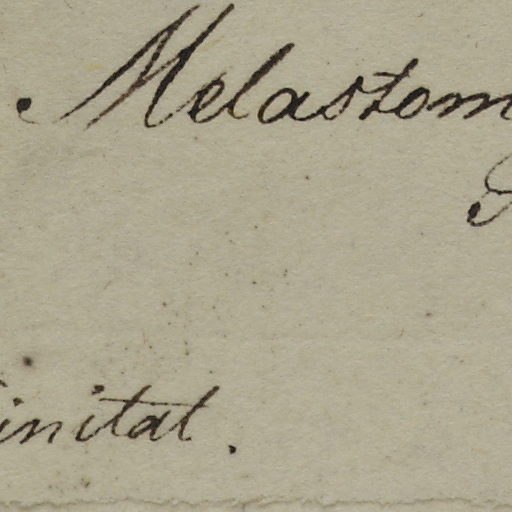 Melastom
initat.